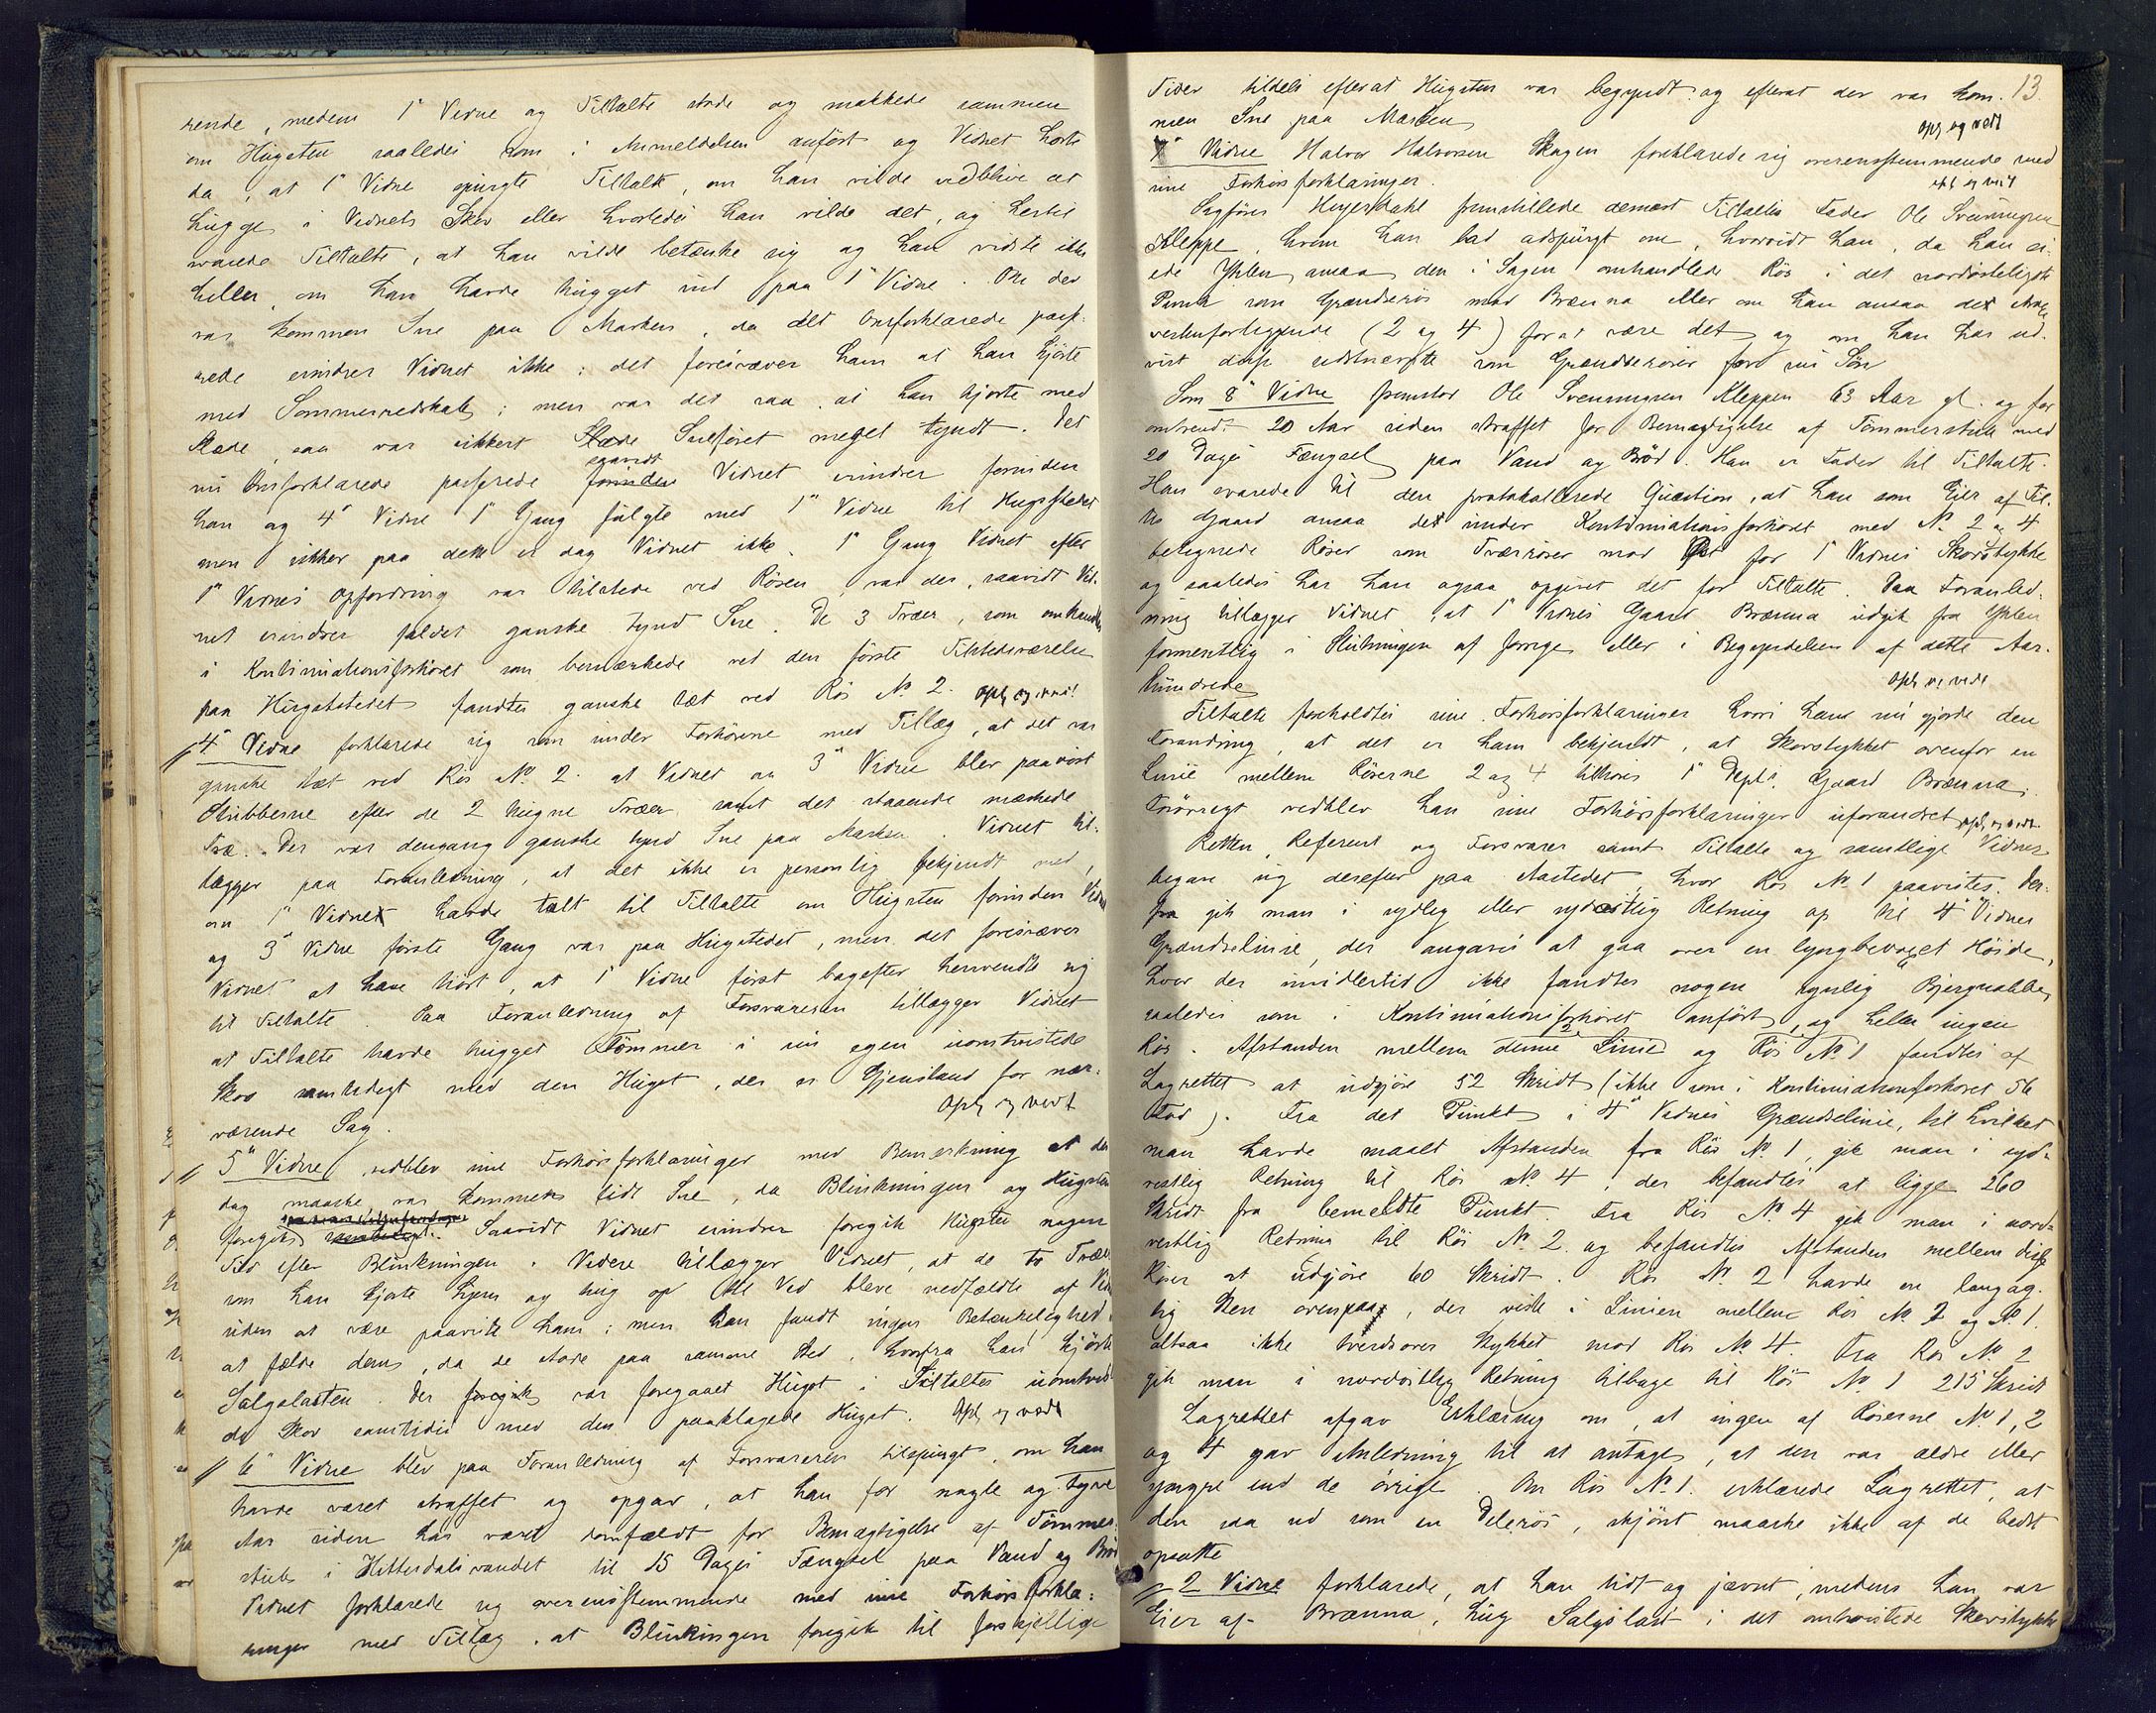 rende, medens 1ste Vidne og Tiltalte stode og snakkede sammen
om Hugsten saaledes som i Anmeldelsen anført og Vidnet hørte
da, at 1ste Vidne spurgte Tiltalte, om han vilde vedblive at
hugge i Vidnets Skov eller hvorledes han vilde det, og hertil
svarede Tiltalte, at han vilde betænke sig og han vidste ikke
heller, om han havde hugget ind paa 1ste Vidne. Om der
var kommen Sne paa Marken, da det Omforklarede pas-
serede erindrer Vidnet ikke; det foresvæver ham at han kjørte
med Sommerredskab; men var det saa, at han kjørte med
Slæde, saa var sikkert Sneføret meget tyndt. Det
nu Omforklarede passerede saavidt Vidnet erindrer forinden
han og 4de Vidne 1ste Gang fulgte med 1ste Vidne til Hugststedet
men sikker paa dette er dog Vidnet ikke. 1ste Gang Vidnet efter
1ste Vidnes Opfordring var tilstede ved Røsen, var der, saavidt Vid-
net erindrer faldet ganske tynd Sne. De 3 Træer, som omhandles
i Kontinuationsforhøret som bemærkede ved den første Tilstedeværelse
paa Hugststedet fandtes ganske tæt ved Røs No 2. Opl. og vedt.
4de Vidne forklarede sig som under Forhørene med Tillæg, at det var
ganske tæt ved Røs No 2. at Vidnet og 3die Vidne blev paavist
Stubberne efter de 2 hugne Træer samt det staaende mærkede
Træ. Der var dengang ganske tynd Sne paa Marken. Vidnet til-
lægger paa Foranledning, at det ikke er personlig bekjendt med,
om 1ste Vidne havde talt til Tiltalte om Hugsten forinden Vidnet
og 3die Vidne første Gang var paa Hugstedet, men det foresvæver
Vidnet at have hørt, at 1ste Vidne først bagefter henvendte sig
til Tiltalte. Paa Foranledning af Forsvareren tillægger Vidnet
at Tiltalte havde hugget Tømmer i sin egen uomtvistede
Skov samtidigt med den Hugst, der er Gjenstand for nær-
værende Sag. Opl. og vedt
5te Vidne vedblev sine Forhørsforklaringer med Bemærkning at der
dog maaske var kommen lidt Sne, da Blinkningen og Hugsten
foregik. Saavidt Vidnet erindrer foregik Hugsten nogen
Tid efter Blinkningen. Videre tillægger Vidnet, at de to Træer
som han kjørte hjem og hug op til Ved bleve nedfældte af Vidnet
uden at være paavist ham; men han fandt ingen Betænkelighed ved
at fælde dem, da de stode paa samme Sted, hvorfra han kjørte
Salgslasten. Der var foregaaet Hugst i Tiltaltes uomtviste-
de Skov samtidig med den paaklagede Hugst. Opl. og vedt
6te Vidne blev paa Foranledning af Forsvareren tilspurgt, om han
havde været straffet og opgav, at han for nogle og tyve
Aar siden har været domfældt for Bemægtigelse af Tømmer-
stub i Hitterdalsvandet til 15 Dages Fængsel paa Vand og Brød
Vidnet forklarede sig overensstemmende med sine Forhørsforkla-
ringer med Tillæg, at Blinkingen foregik til forskjellige
13
Tider tildels efterat Hugsten var begyndt og efterat der var kom-
men Sne paa Marken. Opl. og vedt
7de Vidne Halvor Halvorsen Skogen forklarede sig overensstemmende med
sine Forhørsforklaringer. Opl. og vedt
Sagfører Heyerdahl fremstillede dernæst Tiltaltes Fader Ole Svenungsen
Kleppe, hvem han bad adspurgt om, hvorvidt han, da han ei-
ede Yhlen, ansaa den i Sagen omhandlede Røs i det nordøsteligste
Punkt som Grændserøs mod Brænna eller om han ansaa de
vestenforliggende (2 og 4) for at være det og om han har ud-
vist disse sidstnævnte som Grændserøser for sin Søn
Som 8de Vidne fremstod Ole Svenungsen Kleppen 63 Aar gl. og for
omtrendt 20 Aar siden straffet for Bemægtigelse af Tømmerstub med
20 Dages Fængsel paa Vand og Brød. Han er Fader til Tiltalte.
Han svarede til den protokollerede Quæstion, at han som Eier af Til-
tes Gaard ansaa de under Kontinuationsforhøret med No 2 og 4
betegnede Røser som Tværrøser mod for 1ste Vidnes Skovstykke
og saaledes har han ogsaa opgivet det for Tiltalte. Paa Foranled-
ning tillægger Vidnet, at 1ste Vidnes Gaard Brænna udgik fra Yhlen
formentlig i Slutningen af forrige eller i Begyndelsen af dette Aar-
hundrede. Opl. og vedt
Tiltalte foreholdtes sine Forhørsforklaringer hvori han nu gjorde den
Forandring, at det er ham bekjendt, at Skovstykket ovenfor en
Linie mellem Røserne 2 og 4 tilhører 1ste Depts. Gaard Brænna.
Forøvrigt vedblev han sine Forhørsforklaringer uforandret. Opl. og vedt.
Retten, Referent og Forsvarer samt Tiltalte og samtlige Vidner
begave sig derefter paa Aastedet, hvor Røs No 1 paavistes. Der-
fra gik man i sydlig eller sydøstlig Retning op til 4de Vidnes
Grændselinie, der angaves at gaa over en lyngbevoxet Høide,
hvor der imidlertid ikke fandtes nogen synlig Bjergnabbe,
saaledes som i Kontinuationsforhøret anført, og heller ingen
Røs. Afstanden mellem denne Linie og Røs No 1 fandtes af
Lagrettet at udgjøre 52 Skridt (ikke som i Kontinuationsforhøret 56
Fod). Fra det Punkt i 4de Vidnes Grændselinie, til hvilket
man havde maalt Afstanden fra Røs No 1, gik man i syd-
vestlig Retning til Røs No 4, der befandtes at ligge 260
Skridt fra bemeldte Punkt. Fra Røs No 4 gik man i nord-
vestlig Retning til Røs No 2. og befandtes Afstanden mellem disse
Røser at udgjøre 60 Skridt. Røs No 2 havde en langag-
tig Sten ovenpaa, der viste i Linien mellem Røs No 2 og No 1.
altsaa ikke tversover Stykket mod Røs No 4. Fra Røs No 2
gik man i nordøstlig Retning tilbage til Røs No 1 215 Skridt
Lagrettet afgav Erklæring om, at ingen af Røserne No 1, 2
og 4 gav Anledning til at antages, at den var ældre eller
yngre end de øvrige. Om Røs No 1. erklærede Lagrettet, at
den saa ud som en Delerøs, skjønt maaske ikke af de bedst
opsatte
2 Vidne forklarede, at han tidt og jævnt, medens han var
Eier af Brænna, hug Salgslast i det omtvistede Skovstykke